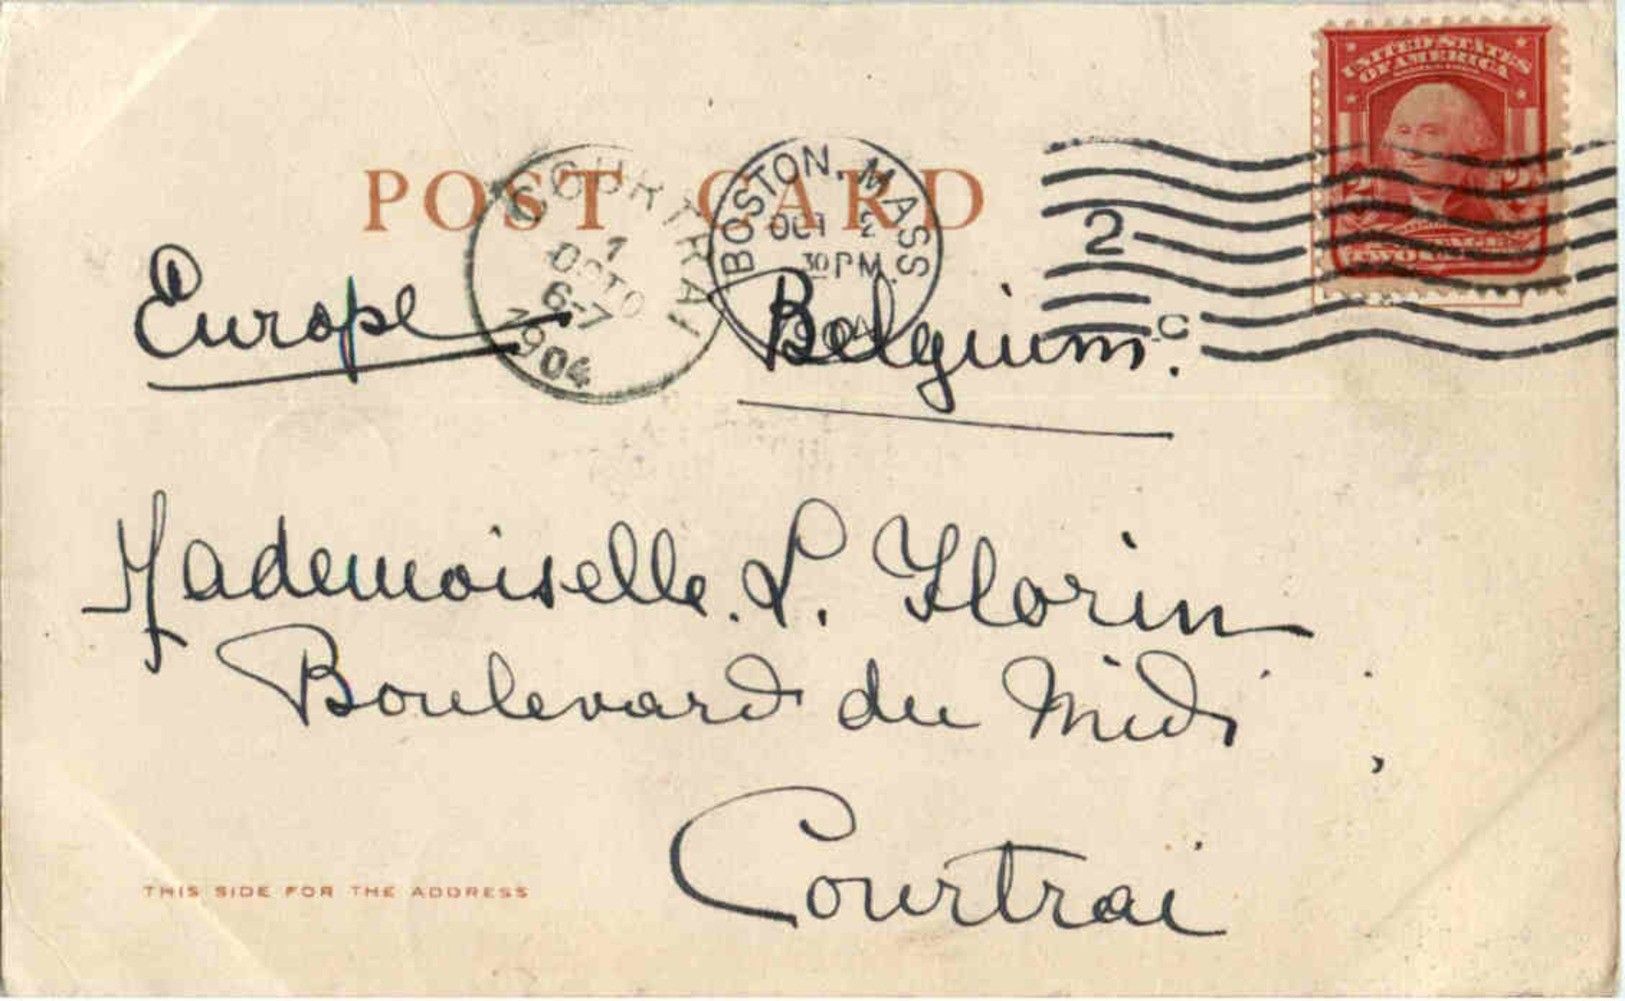 UNITED STATES
OF AMERICA
POST CARD
COURTRAI
1
OCTO
6-7
1904
BOSTON, MASS.
OCT 2
30 PM
2
C
2 2
TWO
Europe Belgium.
Mademoiselle. L. Florin
Boulevard du Midi
Courtrai
THIS SIDE FOR THE ADDRESS